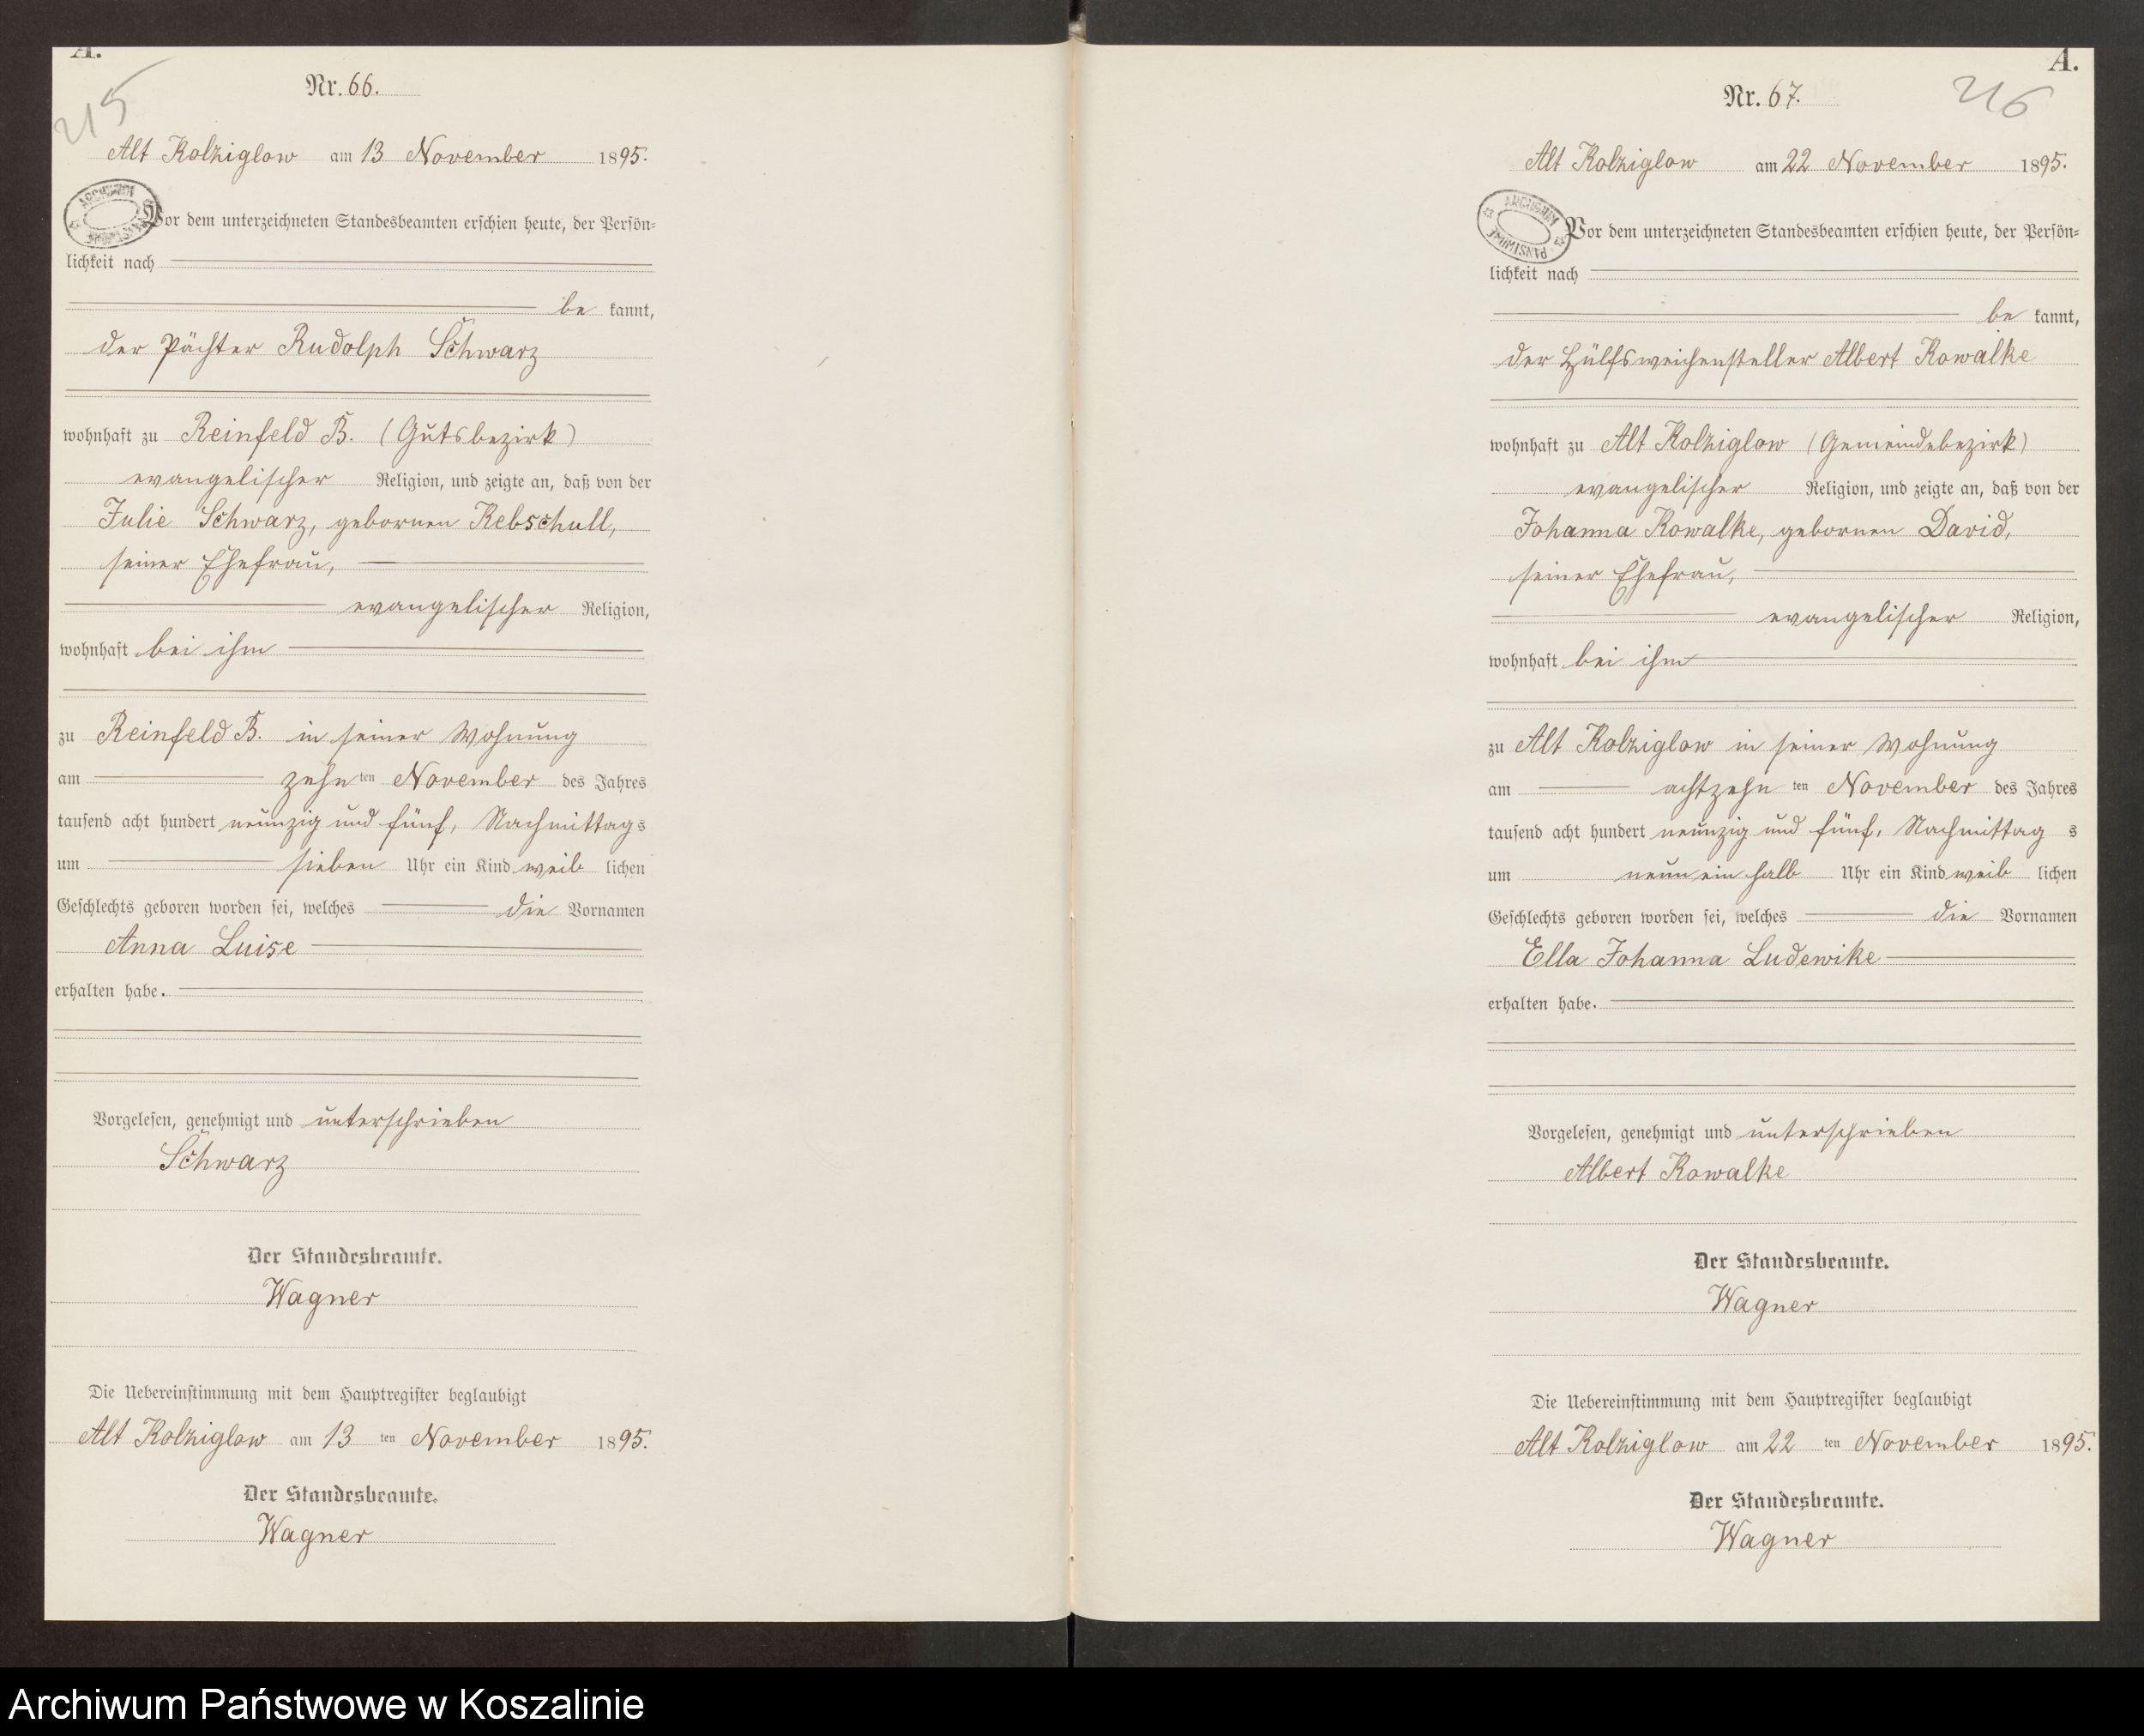 A.
215
Nr. 66.
Alt Kolziglow am 13 November 1895.
Vor dem unterzeichneten Standesbeamten erschien heute, der Persön=
lichkeit nach
be kannt,
der Pächter Rudolph Schwarz
wohnhaft zu Reinfeld B. (Gutsbezirk)
evangelischer Religion, und zeigte an, daß von der
Julie Schwarz, gebornen Rebschull,
seiner Ehefrau,
evangelischer Religion,
wohnhaft bei ihm
zu Reinfeld B. in seiner Wohnung
am zehn ten November des Jahres
tausend acht hundert neunzig und fünf, Nachmittags
um sieben Uhr ein Kind weib lichen
Geschlechts geboren worden sei, welches die Vornamen
Anna Luise
erhalten habe.
Vorgelesen, genehmigt und unterschrieben
Schwarz
Der Standesbeamte.
Wagner
Die Uebereinstimmung mit dem Hauptregister beglaubigt
Alt Kolziglow am 13 ten November 1895.
Der Standesbeamte.
Wagner
A.
216
Nr. 67.
Alt Kolziglow am 22 November 1895.
ARCHIWUM PAŃSTWOWE
Vor dem unterzeichneten Standesbeamten erschien heute, der Persön=
lichkeit nach
be kannt,
der Hülfsweichensteller Albert Kowalke
wohnhaft zu Alt Kolziglow (Gemeindebezirk)
evangelischer Religion, und zeigte an, daß von der
Johanna Kowalke, gebornen David,
seiner Ehefrau,
evangelischer Religion,
wohnhaft bei ihm
zu Alt Kolziglow in seiner Wohnung
am achtzehn ten November des Jahres
tausend acht hundert neunzig und fünf, Nachmittag s
um neun ein halb Uhr ein Kind weib lichen
Geschlechts geboren worden sei, welches die Vornamen
Ella Johanna Ludewike
erhalten habe.
Vorgelesen, genehmigt und unterschrieben
Albert Kowalke
Der Standesbeamte.
Wagner
Die Uebereinstimmung mit dem Hauptregister beglaubigt
Alt Kolziglow am 22 ten November 1895.
Der Standesbeamte.
Wagner
Archiwum Państwowe w Koszalinie